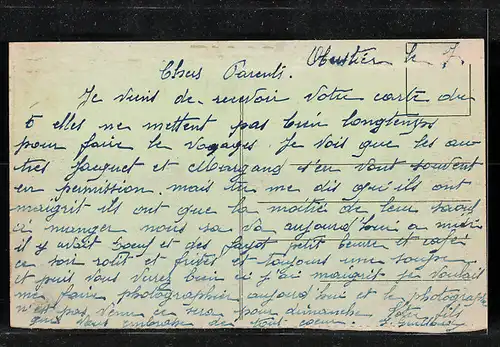 Moustier le 7.
Chers Parents.
Je viens de recevoir votre carte du
5 elles ne mettent pas bien longtemps
pour faire le voyages. Je vois que les au
tres Jacquet et Margand s'en vont souvent
en permission. mais tu me dis qu'ils ont
maigrit ils ont que la moitié de leur saoul
a manger nous sa va aujourd'hui a midi
il y avait bœuf et des fayot petit beurre et café
ce soir rotit et frites et toujours une soupe
et puis vous verez bien si j'ai maigrit je voulait
me faire photographier aujourd'hui et le photographe
n'est pas venu ce sera pour dimanche Votre fils
que vous embrasse de tout cœur.